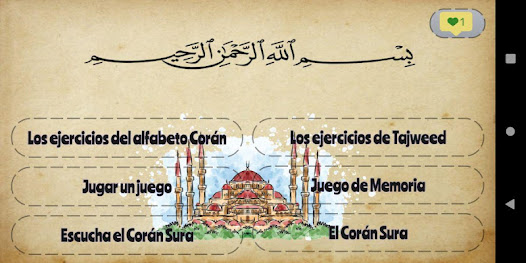 1
بِسْمِ اللَّهِ الرَّحْمَٰنِ الرَّحِيمِ
Los ejercicios del alfabeto Corán
Los ejercicios de Tajweed
Jugar un juego
Juego de Memoria
Escucha el Corán Sura
El Corán Sura